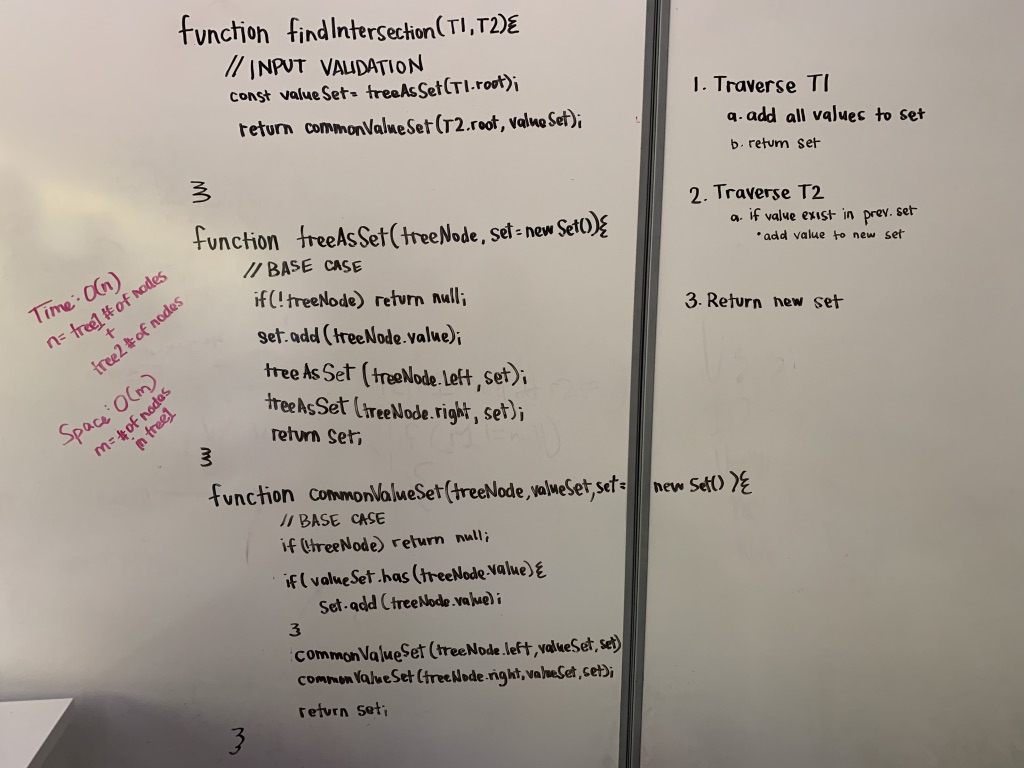 function findIntersection(T1,T2){
// INPUT VALIDATION
const valueSet= treeAsSet(T1.root);
return commonValueSet(T2.root, valueSet);
}
function treeAsSet(treeNode, set=new Set()){
// BASE CASE
if(!treeNode) return null;
set.add(treeNode.value);
treeAsSet (treeNode.left, set);
treeAsSet (treeNode.right, set);
return set;
}
function commonValueSet(treeNode,valueSet,set= new Set() ){
// BASE CASE
if(!treeNode) return null;
if(valueSet.has(treeNode.value){
set.add(treeNode.value);
}
commonValueSet(treeNode.left,valueSet,set)
commonValueSet(treeNode.right,valueSet,set);
return set;
}
Time: O(n)
n= tree1 # of nodes
+
tree2 # of nodes
Space: O(m)
m= # of nodes
in tree1
1. Traverse T1
a. add all values to set
b. return set
2. Traverse T2
a. if value exist in prev. set
• add value to new set
3. Return new set